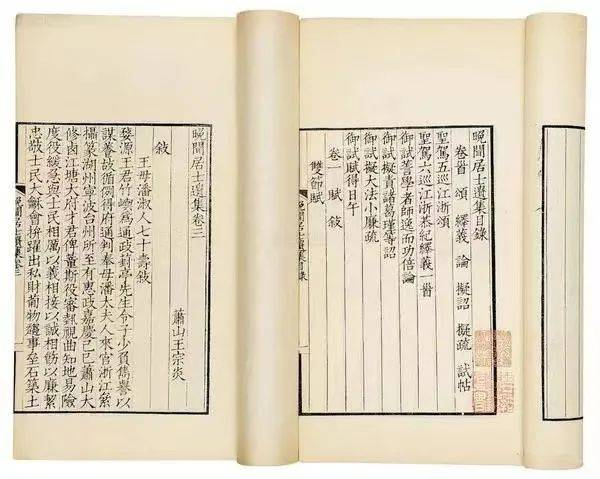 晚聞居士遺集目錄
卷首 頌 繹義 論 擬詔 擬疏 試帖
聖駕五巡江浙頌
聖駕六巡江浙恭紀繹義一首
御試善學者師逸而功倍論
御試擬責諸葛瑾等詔
御試擬大法小廉疏
御試賦得日午
卷一 賦 敘
雙節賦
晚聞居士遺集目錄
晚聞居士遺集卷三
蕭山王宗炎
敘
王母潘淑人七十壽敘
婺源王君竹嶼為通政葑亭先生令子少負雋譽以
謀養故循例得府通判奉母潘太夫人來官浙江絫
攝篆湖州寧波台州所至有惠政嘉慶己巳蕭山大
修鹵江塘大府才君俾董斯役審埶視曲知地易險
度役緩急與士民相厲以義相接以誠相飭以廉絜
忠敬士民大龢會拚躍出私財葡物事壘石築土
晚聞居士遺集卷三